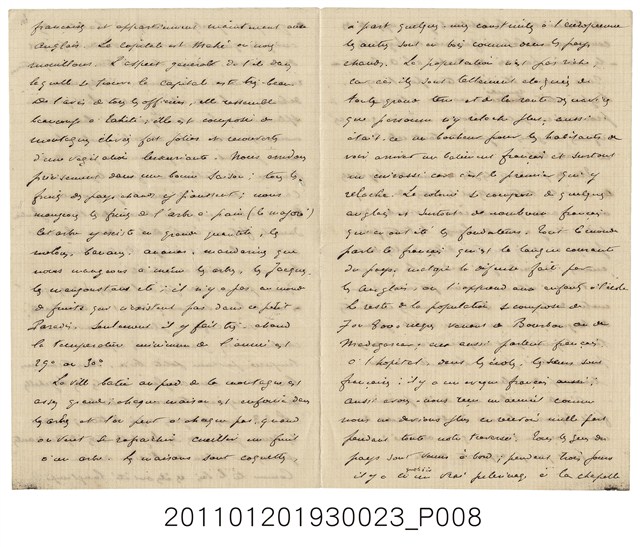 françaises et appartiennent maintenant aux
anglais. La capitale est Mahé où nous
mouillons. L'aspect général de l'île dans
laquelle se trouve la capitale est très beau
de l'avis de tous les officiers, elle ressemble
beaucoup à Tahiti; elle est composée de
montagnes élevées fort jolies et recouvertes
d'une végétation luxuriante. Nous arrivons
précisément dans une bonne saison; tous les
fruits des pays chauds y poussent; nous
mangeons les fruits de l'arbre à pain (le majoré)
cet arbre y existe en grande quantité, les
melons, bananes, ananas, mandarines que
nous mangeons à même les arbres, les Jacques,
les mangoustans etc; il n'y a pas au monde
de fruits qui n'existent pas dans ce petit
Paradis. Seulement il y fait très chaud
la température minimum de l'année est
29° ou 30°
La ville bâtie au pied de la montagne est
assez grande; chaque maison est enfouie dans
les arbres et l'on peut à chaque pas, quand
on veut se rafraîchir cueillir un fruit
d'un arbre. Les maisons sont coquettes,
à part quelques unes construites à l'européenne
les autres sont en bois comme dans les pays
chauds. La population n'est pas riche,
car ces îles sont tellement éloignées de
toute grande terre et de la route des navires
que personne n'y relâche plus, aussi
était-ce un bonheur pour les habitants de
voir arriver un bâtiment français et surtout
un cuirassé car c'est le premier qui y
relâche. La colonie se compose de quelques
anglais et surtout de nombreux français
qui en ont été les fondateurs. Tout le monde
parle le français qui est la langue courante
du pays, malgré la défense faite par
les anglais de l'apprendre aux enfants à l'école.
Le reste de la population se compose de
7 ou 800 nègres venus de Bourbon ou de
Madagascar; eux aussi parlent français
à l'hôpital, dans les écoles, les sœurs sont
françaises; il y a un évêque français aussi;
aussi avons-nous reçu un accueil comme
nous ne devions plus en recevoir nulle part
pendant toute notre traversée. Tous les gens du
pays sont venus à bord; pendant trois jours
il y a eu un vrai pèlerinage à la chapelle
201101201930023_P008